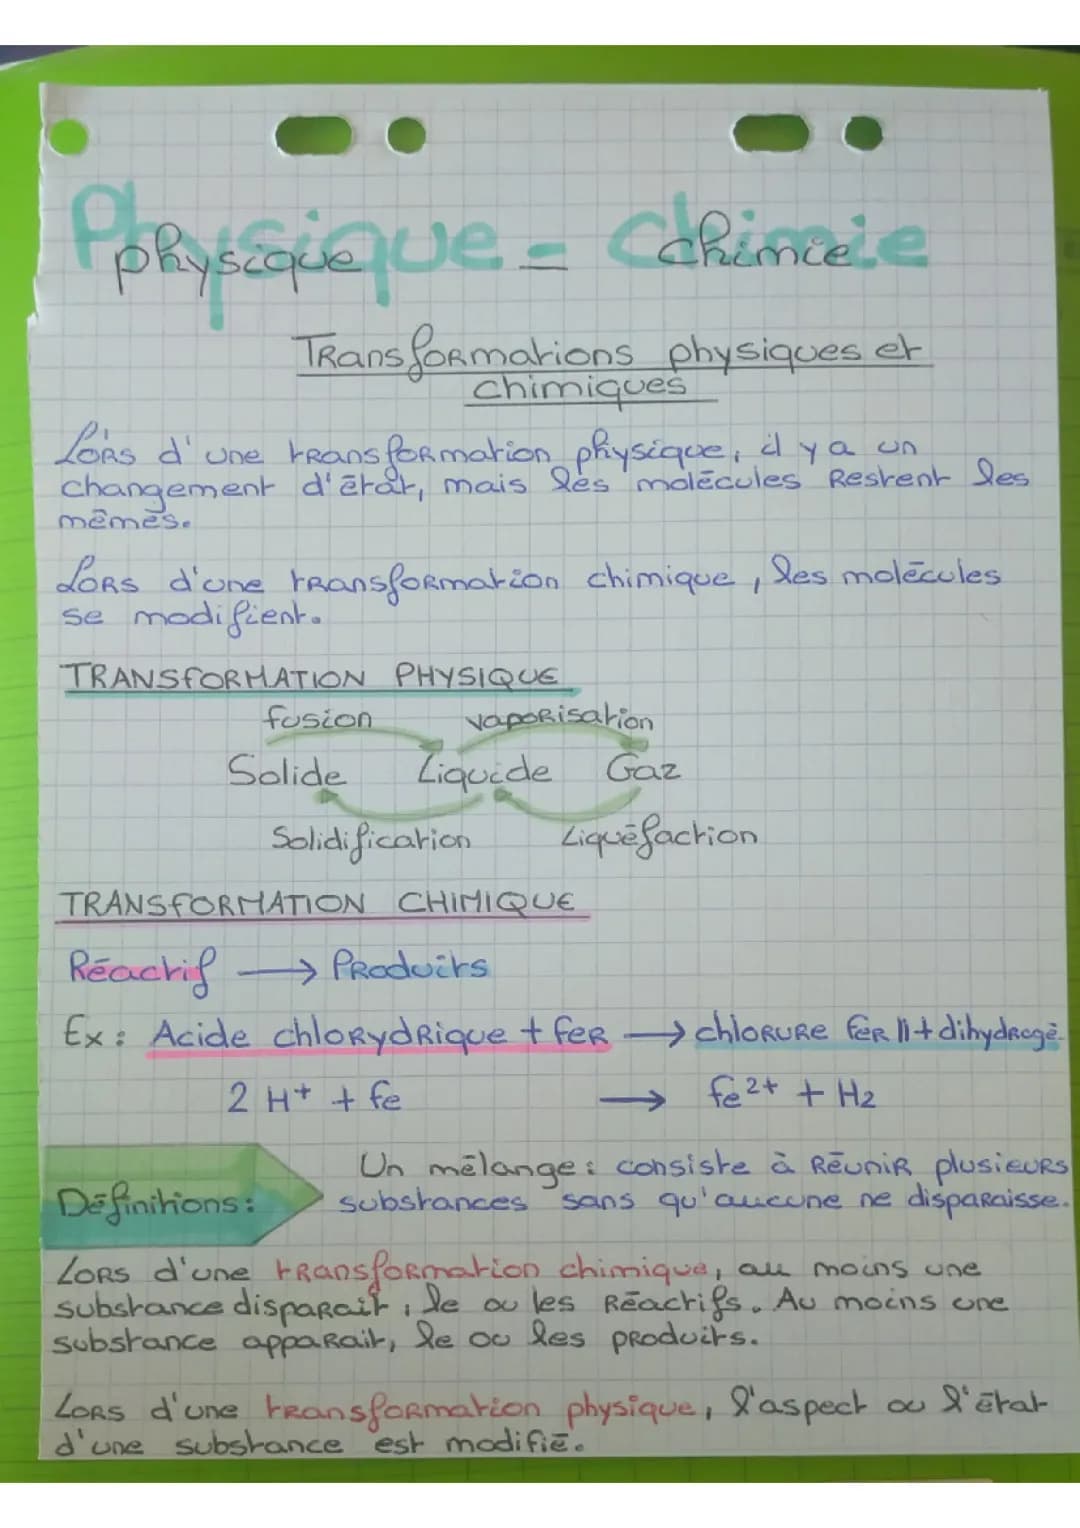 Physique - Chimie
physique chimie
Transformations physiques et
chimiques
Lors d'une transformation physique, il y a un
changement d'état, mais les molécules restent les
mêmes.
Lors d'une transformation chimique, les molécules
se modifient.
TRANSFORMATION PHYSIQUE
fusion vaporisation
Solide Liquide Gaz
Solidification Liquéfaction
TRANSFORMATION CHIMIQUE
Réactif → Produits
Ex : Acide chlorydrique + fer → chlorure fer II + dihydrogè.
2 H+ + fe → fe2+ + H2
Un mélange : consiste à réunir plusieurs
Définitions : substances sans qu'aucune ne disparaisse.
Lors d'une transformation chimique, au moins une
substance disparait, le ou les réactifs. Au moins une
substance apparait, le ou les produits.
Lors d'une transformation physique, l'aspect ou l'état
d'une substance est modifié.